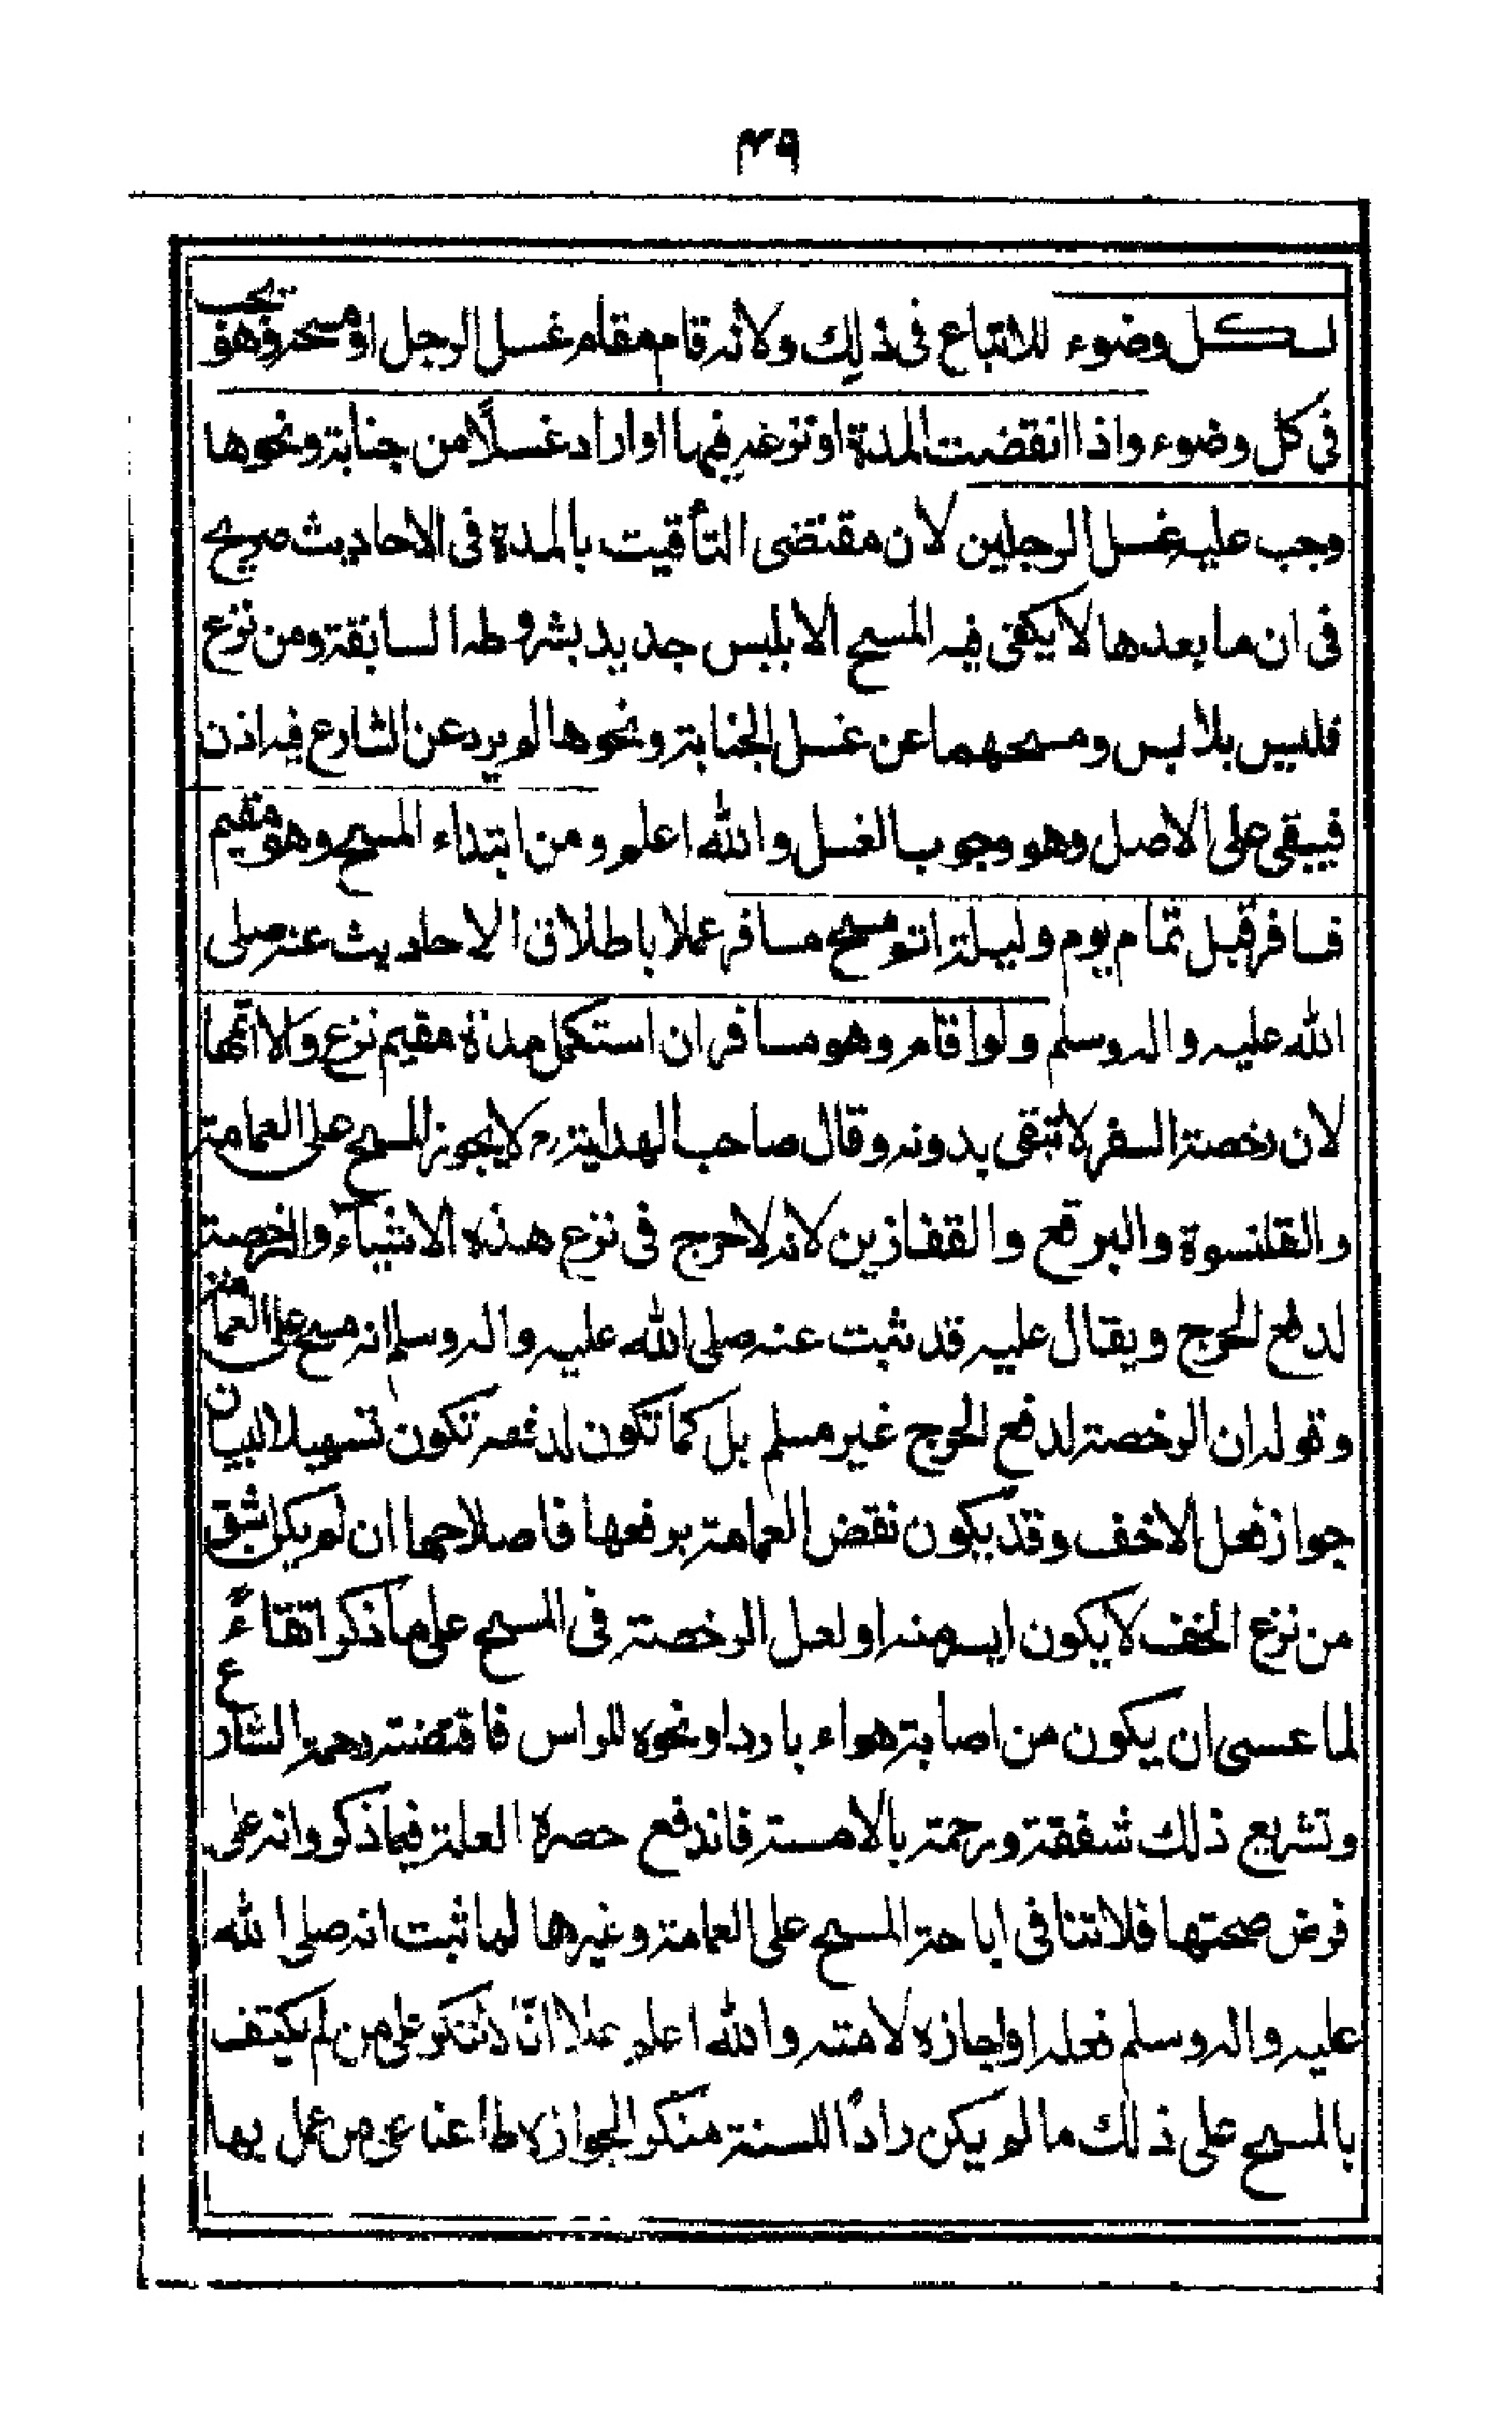 ٤٩
لكل وضوء للاتباع فى ذلك ولانه قام مقام غسل الرجل او مسحه وهو يجب
فى كل وضوء واذا انقضت المدة او نزعه فيها او اراد غسلًا من جنابة ونحوها
وجب عليه غسل الرجلين لان مقتضى التأقيت بالمدة فى الاحاديث صريح
فى ان ما بعدها لا يكفى فيه المسح الا بلبس جديد بشروطه السابقة ومن نزع
فليس بلابس ومسحهما عن غسل الجنابة ونحوها لم يرد عن الشارع فيه اذن
فيبقى على الاصل وهو وجوب الغسل والله اعلم ومن ابتداء المسح وهو مقيم
فسافر قبل تمام يوم وليلة اتم مسح مسافر عملا باطلاق الاحاديث عنه صلى
الله عليه واله وسلم ولو اقام وهو مسافر ان استكمل مدة مقيم نزع والا اتمها
لان رخصة السفر لا تبقى بدونه وقال صاحب الهداية رح لا يجوز المسح على العمامة
والقلنسوة والبرقع والقفازين لانه لا حرج فى نزع هذه الاشياء والرخصة
لدفع الحرج ويقال عليه قد ثبت عنه صلى الله عليه واله وسلم انه مسح على العمامة
وقوله ان الرخصة لدفع الحرج غير مسلم بل كما تكون لدفعه تكون تسهيلا لبيان
جواز فعل الاخف وقد يكون نقض العمامة برفعها فاصلاحها ان لم يكن اشق
من نزع الخف لا يكون ايسر منه او لعل الرخصة فى المسح على ما ذكر اتقاءً
لما عسى ان يكون من اصابة هواء بارد او نحوه للراس فاقتضته رحمة الشارع
وتشريع ذلك شفقة ورحمة بالامة فاندفع حصره العلة فيما ذكر وانه على
فرض صحتها فلا تنافى اباحة المسح على العمامة وغيرها لما ثبت انه صلى الله
عليه واله وسلم فعله او اجازه لامته والله اعلم علا انّا لا ننكر على من لم يكتف
بالمسح على ذلك ما لم يكن رادًا للسنة منكر الجوازه طاعنا على من عمل بها